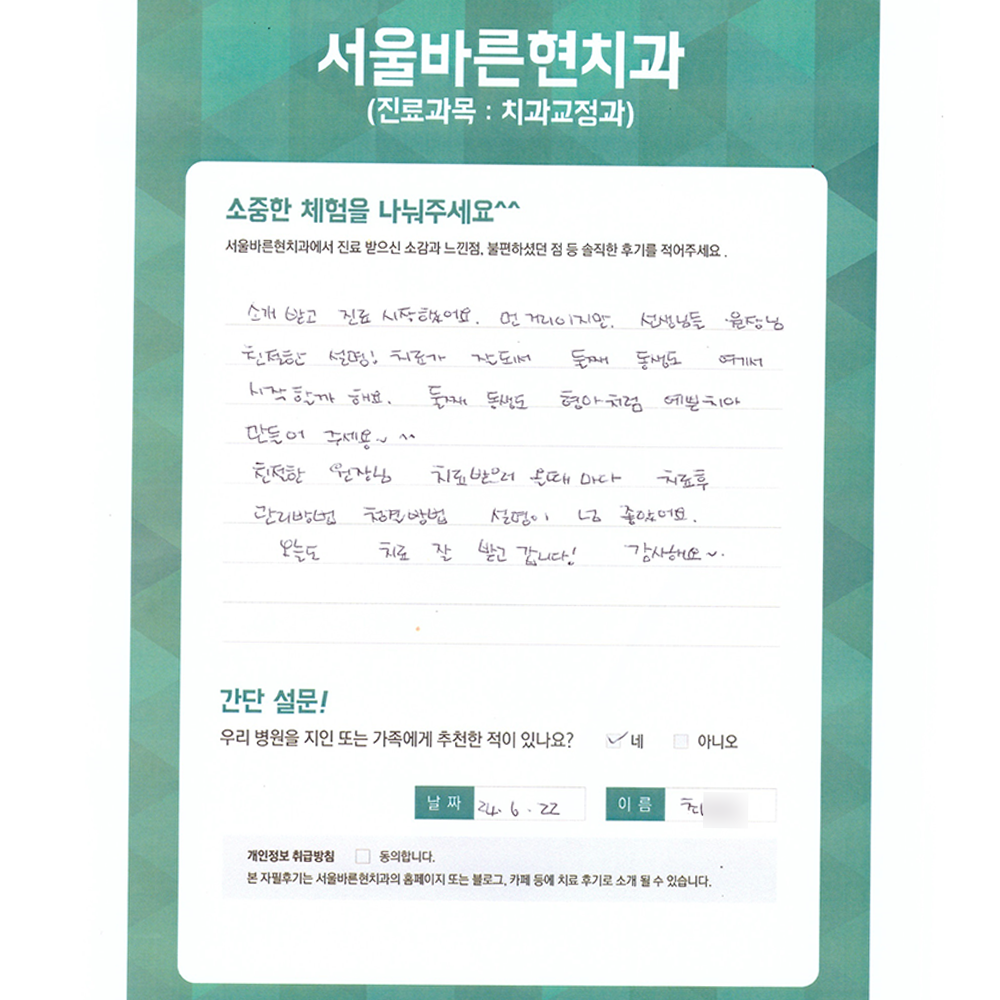 서울바른현치과
(진료과목 : 치과교정과)
소중한 체험을 나눠주세요^^
서울바른현치과에서 진료 받으신 소감과 느낀점, 불편하셨던 점 등 솔직한 후기를 적어주세요 .
소개 받고 진료 시작했어요. 먼 거리이지만. 선생님들 원장님
친절한 설명! 치료가 잘되서 둘째 동생도 여기서
시작할까 해요. 둘째 동생도 형아처럼 예쁜치아
만들어 주세용~ ^^
친절한 원장님 치료받으러 올때 마다 치료후
관리방법 설명이 넘 좋았어요.
오늘도 치료 잘 받고 갑니다! 감사해요~.
간단 설문!
우리 병원을 지인 또는 가족에게 추천한 적이 있나요? 네 아니오
날 짜 24. 6. 22 이 름 최
개인정보 취급방침 동의합니다.
본 자필후기는 서울바른현치과의 홈페이지 또는 블로그, 카페 등에 치료 후기로 소개 될 수 있습니다.